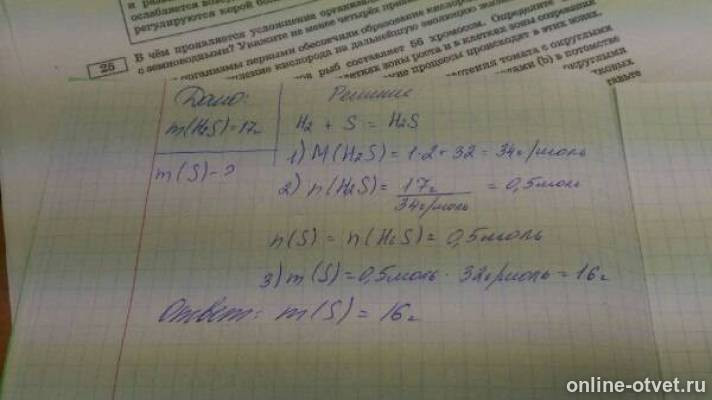 регулируются корой
25
В чём проявляется усложнение
с земноводными? Укажите не менее четырёх
организмы первыми обеспечили образование
кислорода на дальнейшую эволюцию
рыб составляет 56 хромосом. Определите
клетках зоны роста и в клетках зоны созревания
процессы происходят в этих зонах.
томата с округлыми
(b) в потомстве
Дано:
m(H2S)=17г
m(S)-?
Решение
H2 + S = H2S
1) M(H2S) = 1·2+32 = 34г/моль
2) n(H2S)= 17г/34г/моль = 0,5моль
n(S) = n(H2S)= 0,5моль
3) m(S)=0,5моль · 32г/моль = 16г
Ответ: m(S) = 16г
online-otvet.ru